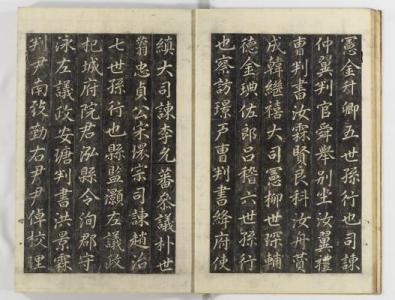 憲金升卿五世孫行也司諫
仲翼判官舜擧別坐汝翼禮
曹判書汝霖賢良科汝舟蓂
成韓繼禧大司憲柳世琛輔
德金琠佐郎呂稽六世孫行
也察訪璟戶曹判書絳府使
縝大司諫李允蕃參議朴世
蓊忠貞公宋㦕宗司諫趙治
七世孫行也縣監灝左議政
杞城府院君泓縣令洵郡守
泳左議政安瑭判書洪景霖
判尹南致勤右尹尹倬校理